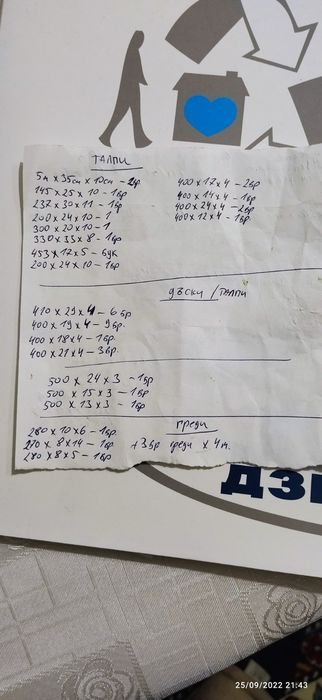 ТАЛПИ
5м x 35см x 10см - 2бр.
145 x 25 x 10 - 1бр
237 x 30 x 11 - 1бр
200 x 24 x 10 - 1
300 x 20 x 10 - 1
330 x 33 x 8 - 1бр
453 x 17 x 5 - 6бр
200 x 24 x 10 - 1бр
400 x 17 x 4 - 2бр
400 x 14 x 4 - 1бр
400 x 24 x 4 - 2бр
400 x 12 x 4 - 1бр.
ДЪСКИ / ТАЛПИ
410 x 29 x 4 - 6 бр
400 x 19 x 4 - 9бр.
400 x 18 x 4 - 1бр.
400 x 21 x 4 - 3бр.
500 x 24 x 3 - 1бр
500 x 15 x 3 - 1бр
500 x 13 x 3 - 1бр
ГРЕДИ
280 x 10 x 6 - 1бр.
270 x 8 x 14 - 1бр. + 3бр греди x 4м.
280 x 8 x 5 - 1бр
ДЗИ
25/09/2022 21:43